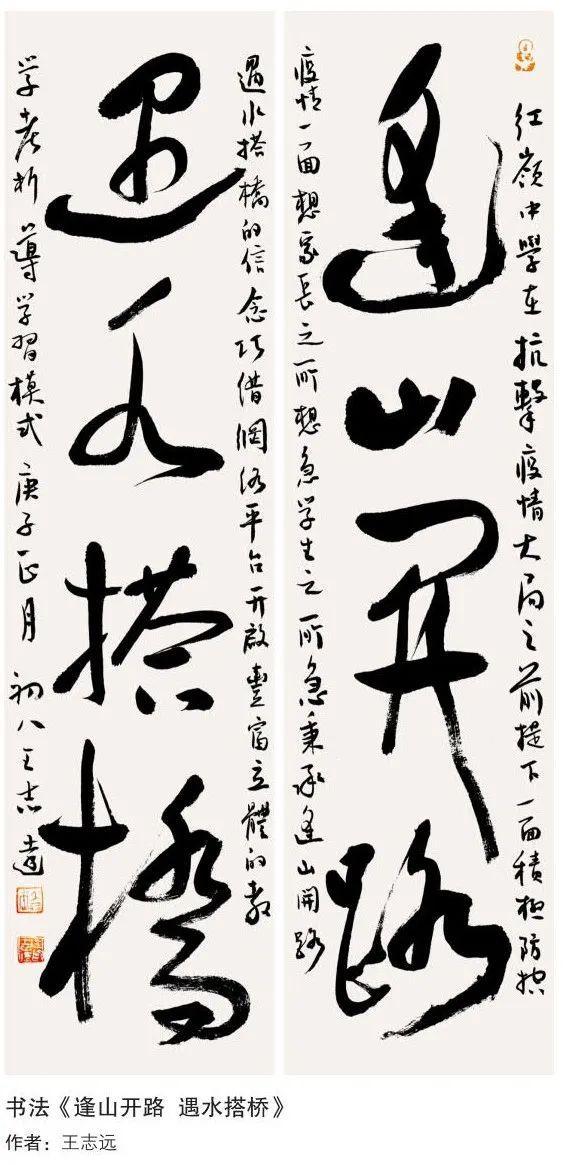 红嶺中學在抗擊疫情大局之前提下一面積极防控
逢山开路
疫情一面想家長之所想急学生之所急秉承逢山開路
遇水搭橋的信念巧借網络平台开啟豐富立體的教
遇水搭橋
学 導学習模式 庚子正月初八王志遠
书法《逢山开路 遇水搭桥》
作者：王志远